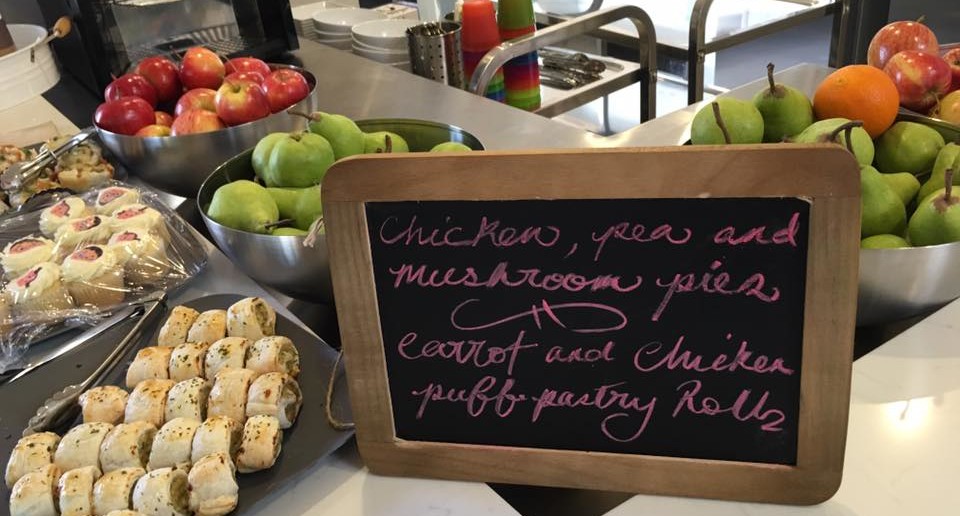 Chicken, pea and
mushroom pies
Carrot and Chicken
puff-pastry Rolls